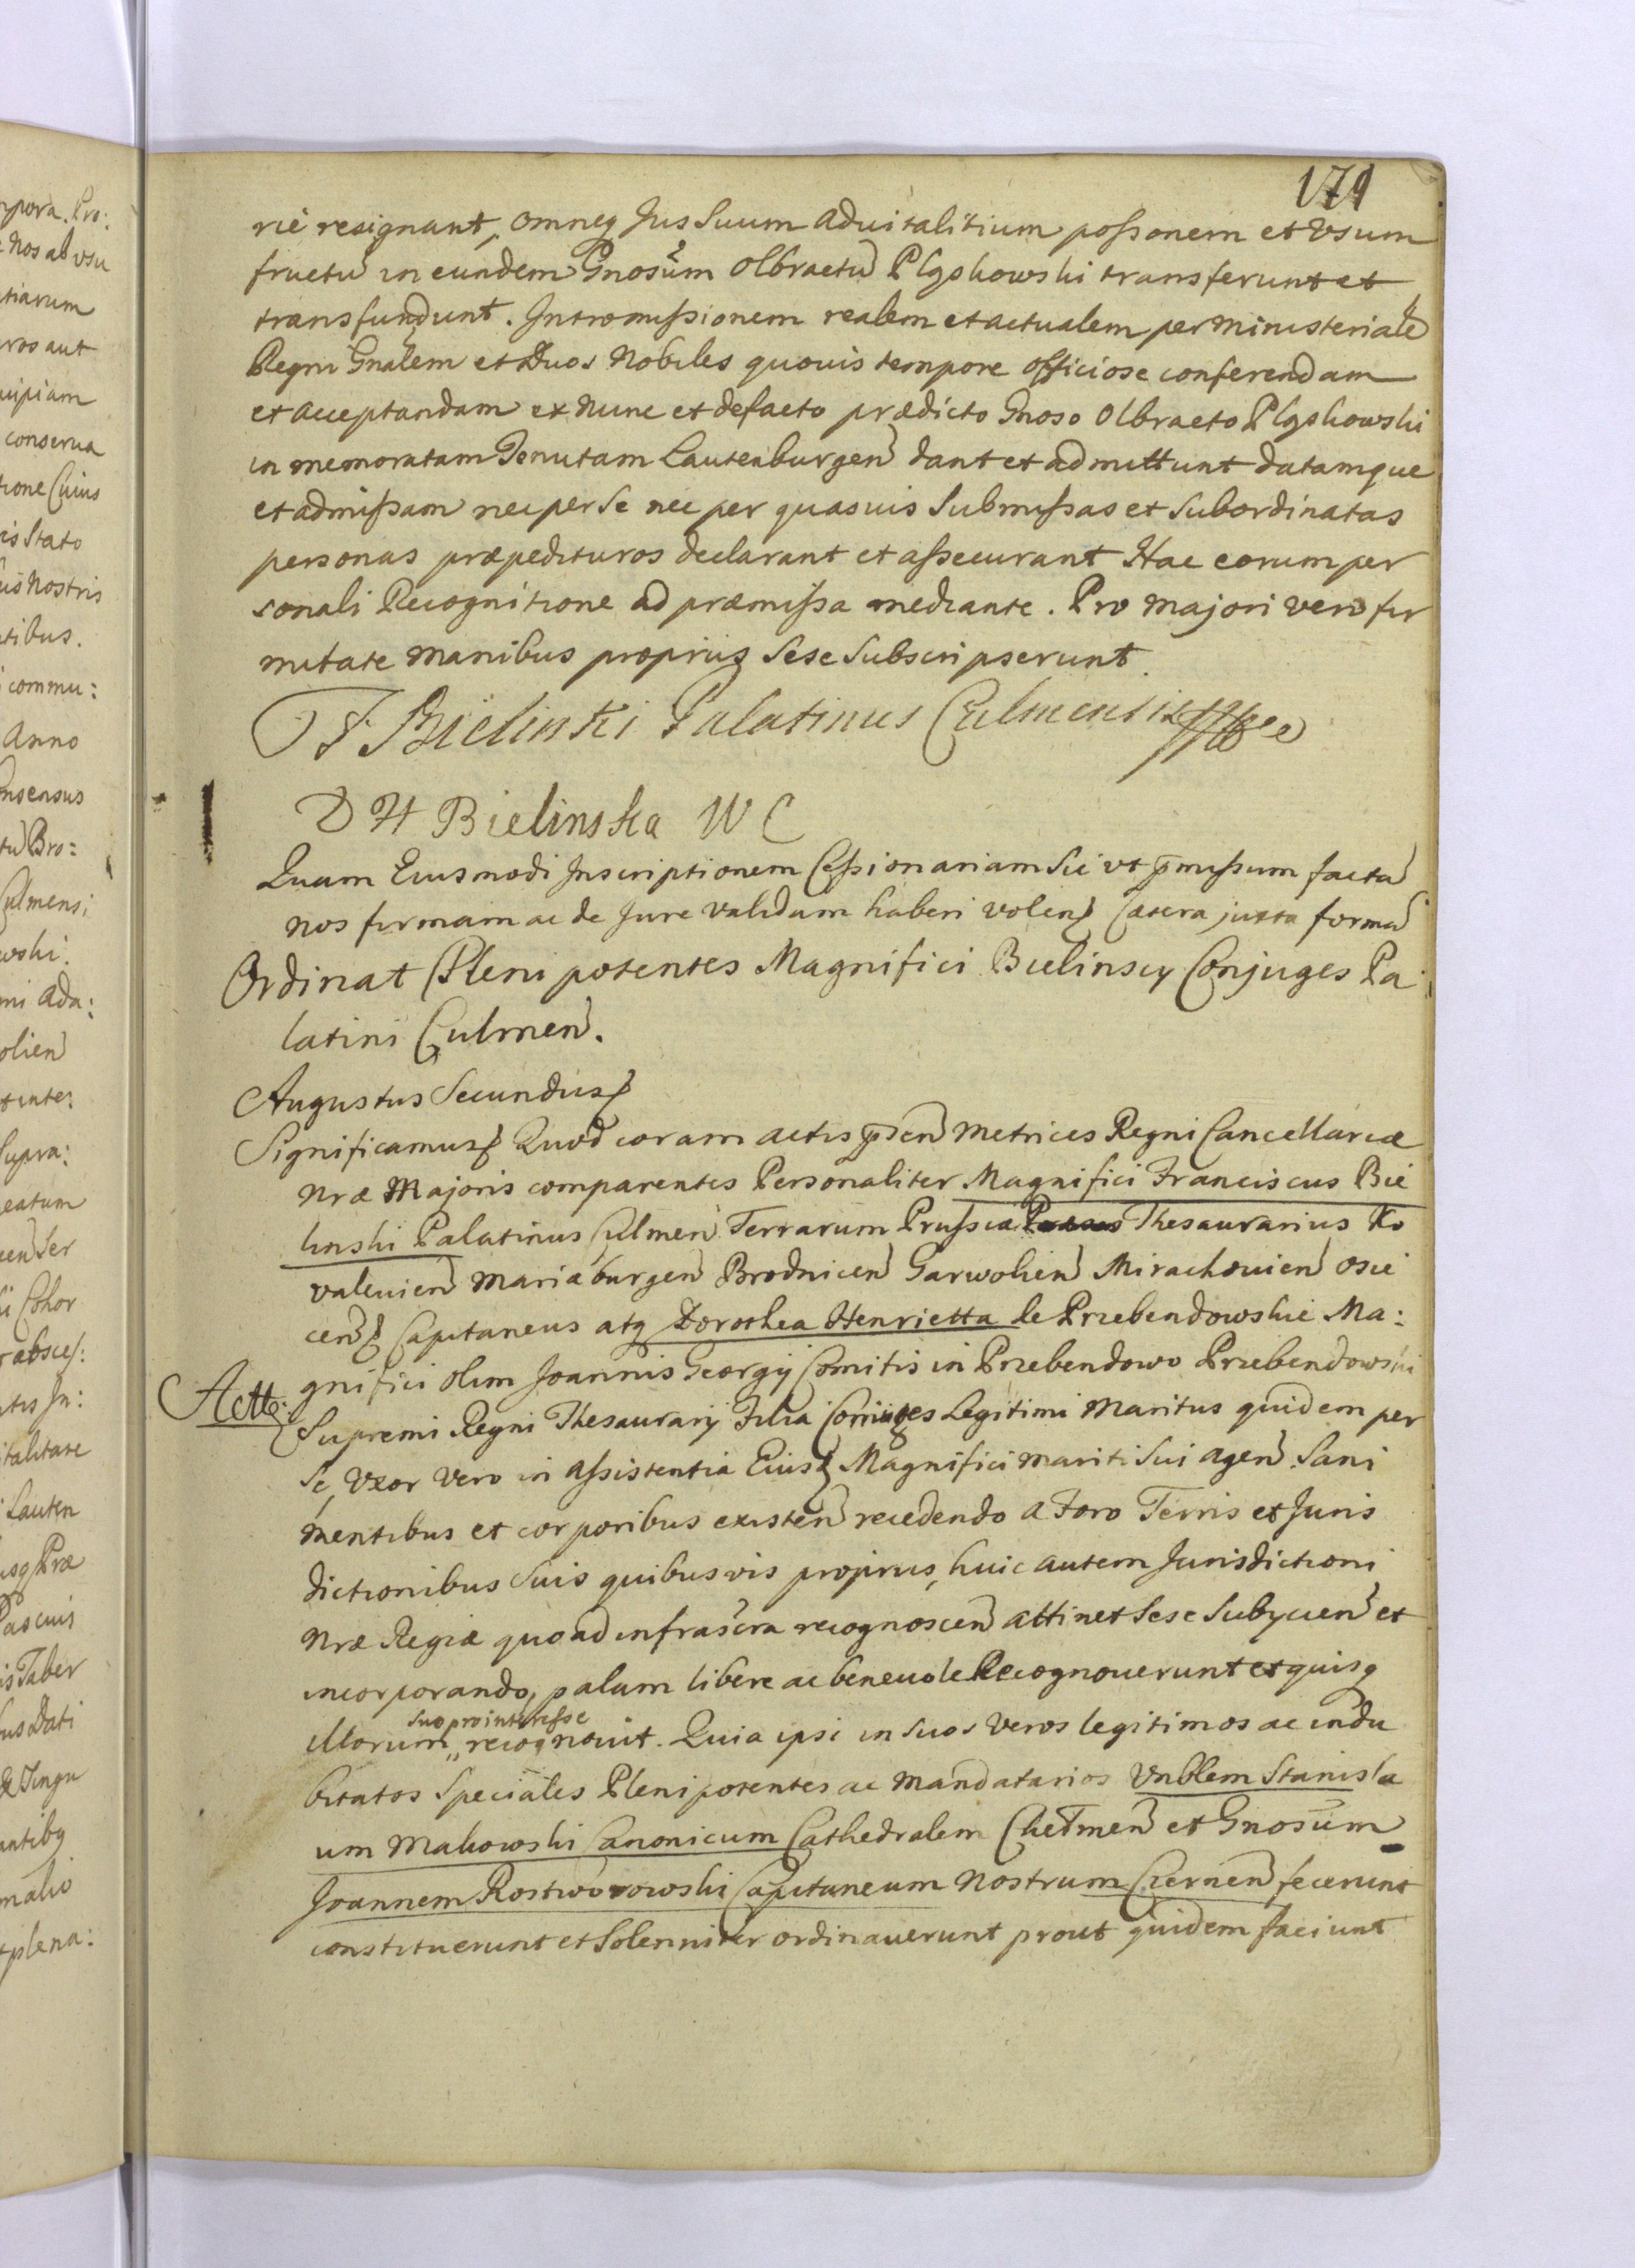 171
rié resignant, omneq Jus Suum aduitalitium possonem et Vsum
fructū in eundem Gnosum Olbractū Plgskowski transferunt et
transfundunt. Intromissionem realem et actualem per ministerialē
Regni Gnalem et Duos Nobiles quouis tempore officiose conferendam
et acceptandam ex nunc et defacto prædicto Gnoso Olbracto Plgskowski
in memoratam Tenutam Lautenburgen dant et admittunt datamque
et admissam nec per se nec per quasuis Submissas et Subordinatas
personas præpedituros declarant et assecurant Hac eorum per
sonali Recognitione ad præmissa mediante. Pro majori vero fir
mitate manibus proprijs Sese Subscripserunt.
F Bielinski Palatinus Culmensis
D H Bielinska W C
Quam Eiusmodi Inscriptionem Cessionariam Sic vt pmissum factā
nos firmam ac de Jure validam haberi volen Cætera juxta formā
Ordinat Plenipotentes Magnifici Bielinscy Conjuges Pa:
latini Culmen.
Augustus Secundus
Significamus Quod coram actis psen Metrices Regni Cancellariæ
Nræ Majoris comparentes Personaliter Magnifici Franciscus Bie
linski Palatinus Culmen Terrarum Prussiæ Thesaurarius Ko
valeuien Mariæburgen Brodnicen Garwolien Mirachouien Osie
cen Capitaneus atq Dorothea Henrietta de Przebendowskie Ma:
gnifici olim Joannis Georgij Comitis in Przebendowo Przebendowski
Actt:
Supremi Regni Thesaurarij Filia Coniuges Legitimi Maritus quidem per
Se, Vxor vero in assistentia Eius Magnifici mariti Sui agen Sani
mentibus et corporibus existen recedendo a Foro Terris et Juris
dictionibus Suis quibusvis proprijs, huic autem Jurisdictioni
Nræ Regiæ quoad infrascra recognoscen attinet Sese Subijcien et
incorporando, palam libere ac beneuole Recognouerunt et quisq
suo pro interesse
illorum recognouit. Quia ipsi in Suos Veros legitimos ac indu
bitatos Speciales Plenipotentes ac Mandatarios Vnblem Stanisla
um Makowski Canonicum Cathedralem Chełmen et Gnosum
Joannem Rostworowski Capitaneum Nostrum Czernen fecerunt
constituerunt et Solenniter ordinauerunt prout quidem faciunt